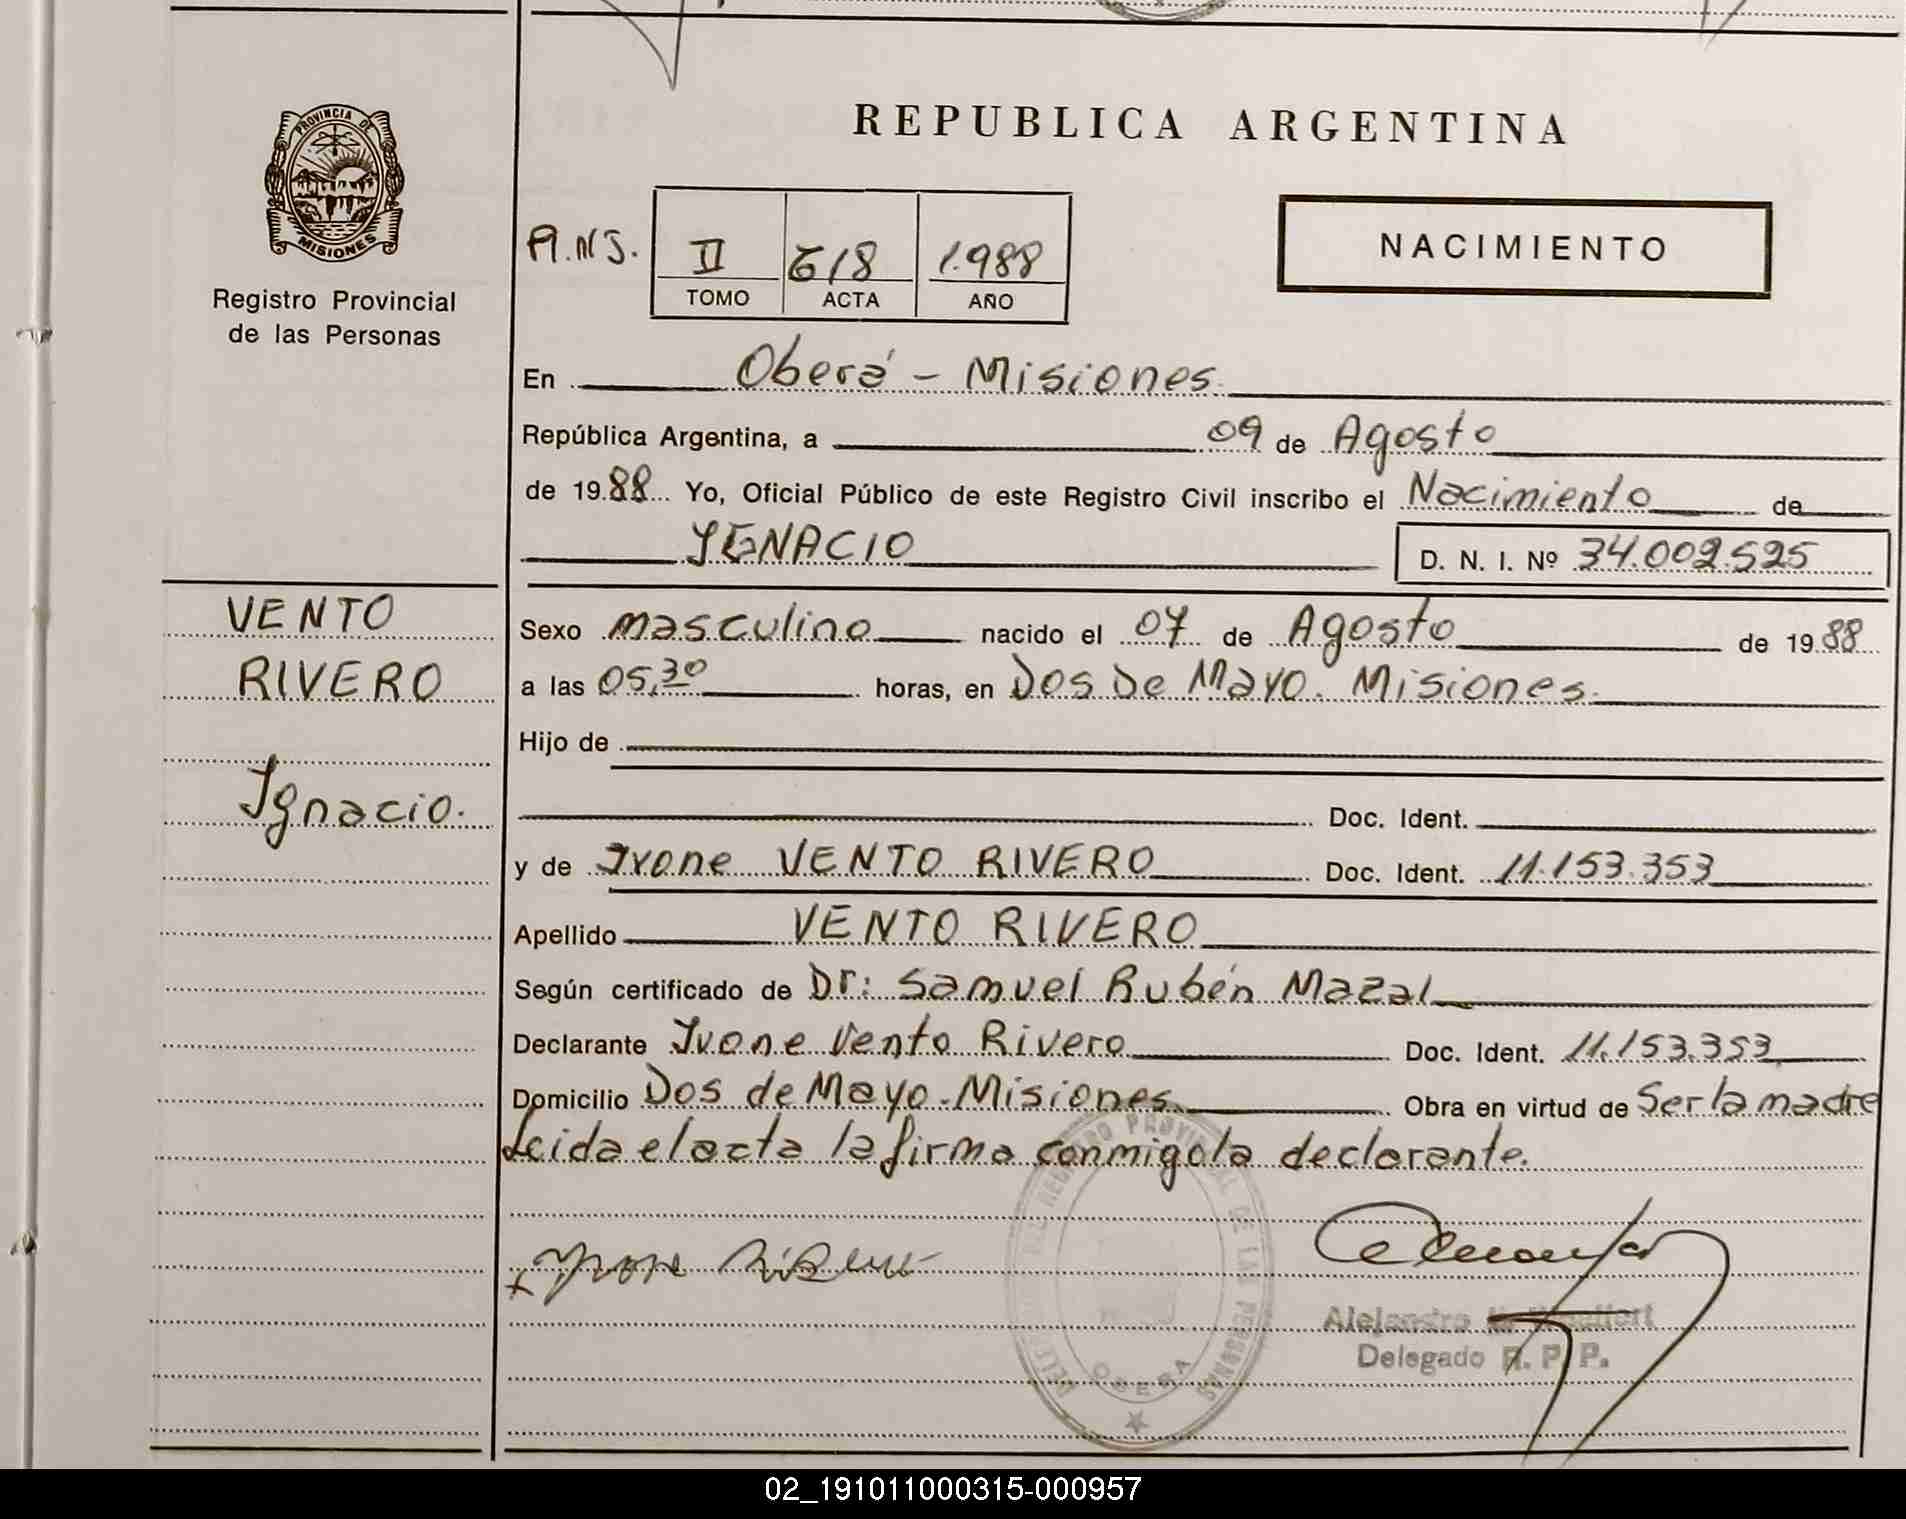 REPUBLICA ARGENTINA
PROVINCIA DE
MISIONES
Registro Provincial
de las Personas
A.N.S.
II 618 1.988
TOMO ACTA AÑO
NACIMIENTO
En Oberá - Misiones
República Argentina, a 09 de Agosto
de 1988 Yo, Oficial Público de este Registro Civil inscribo el Nacimiento de
IGNACIO D. N. I. Nº 34.002.525
VENTO
RIVERO
Ignacio.
Sexo masculino nacido el 07 de Agosto de 1988
a las 05,30 horas, en Dos De Mayo. Misiones.
Hijo de
Doc. Ident.
y de Ivone VENTO RIVERO Doc. Ident. 11.153.353
Apellido VENTO RIVERO
Según certificado de Dr: Samuel Rubén Mazal
Declarante Ivone Vento Rivero Doc. Ident. 11.153.353
Domicilio Dos de Mayo. Misiones Obra en virtud de Ser la madre
Leida el acta la firma conmigo la declarante.
REGISTRO PROVINCIAL DE LAS PERSONAS
OBERA
Alejandro
Delegado R. P. P.
02_191011000315-000957